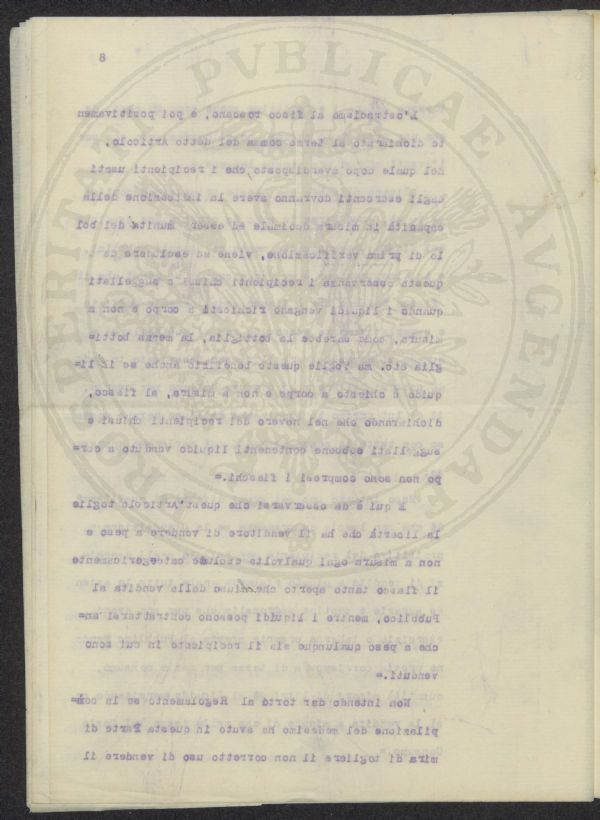 8
PVBLICAE
AVGENDAE
PROSPERITATI
L'ostracismo al fiasco toscano, è poi positivamen
te dichiarato al terzo comma del detto Articolo,
nel quale dopo aver disposto che i recipienti usati
dagli esercenti dovranno avere la indicazione della
capacità in misura decimale ed esser muniti del bol
lo di prima verificazione, viene ad escludere da
questa osservanza i recipienti chiusi e suggellati
quando i liquidi vengano richiesti a corpo e non a
misura, come sarebbe la bottiglia, la mezza botti=
glia etc. ma toglie questo beneficio anche se il li=
quido è chiesto a corpo e non a misura, al fiasco,
dichiarando che nel novero dei recipienti chiusi e
suggellati sebbene contenenti liquido venduto a cor=
po non sono compresi i fiaschi.=
E qui è da osservarsi che quest'Articolo toglie
la libertà che ha il venditore di vendere a peso e
non a misura ogni qualvolta esclude categoricamente
il fiasco tanto aperto che chiuso dalla vendita al
Pubblico, mentre i liquidi possono contrattarsi an=
che a peso qualunque sia il recipiente in cui sono
venduti.=
Non intendo dar torto al Regolamento se la com=
pilazione del medesimo ha avuto in questa Parte di
mira di togliere il non corretto uso di vendere il